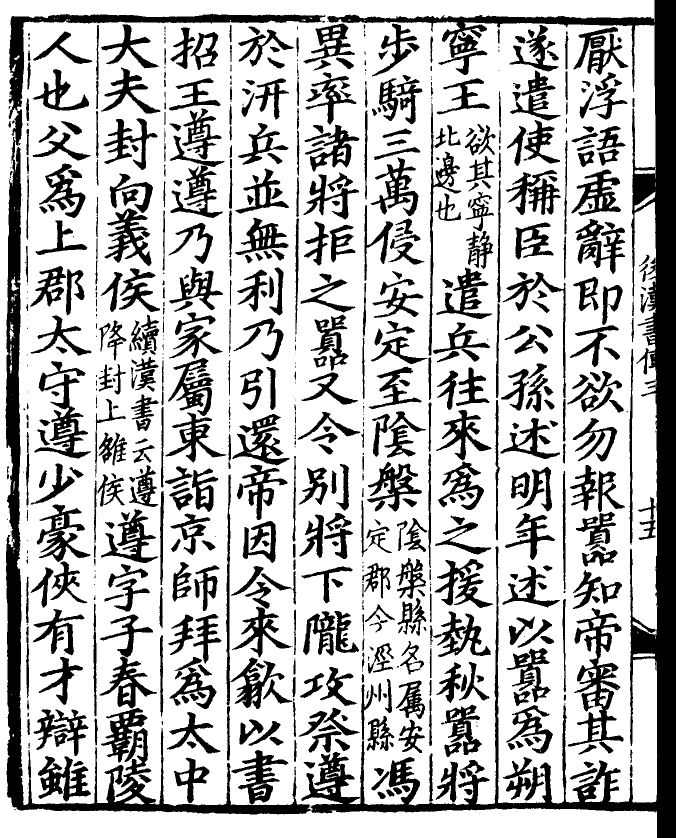 後漢書傳三 十五
厭浮語虛辭即不欲勿報囂知帝審其詐
遂遣使稱臣於公孫述明年述以囂爲朔
寧王欲其寧静北邊也遣兵往來爲之援埶秋囂將
步騎三萬侵安定至陰槃陰槃縣名屬安定郡今涇州縣馮
異率諸將拒之囂又令别將下隴攻祭遵
於汧兵並無利乃引還帝因令來歙以書
招王遵遵乃與家屬東詣京師拜爲太中
大夫封向義侯續漢書云遵降封上雒侯遵字子春霸陵
人也父爲上郡太守遵少豪俠有才辯雖